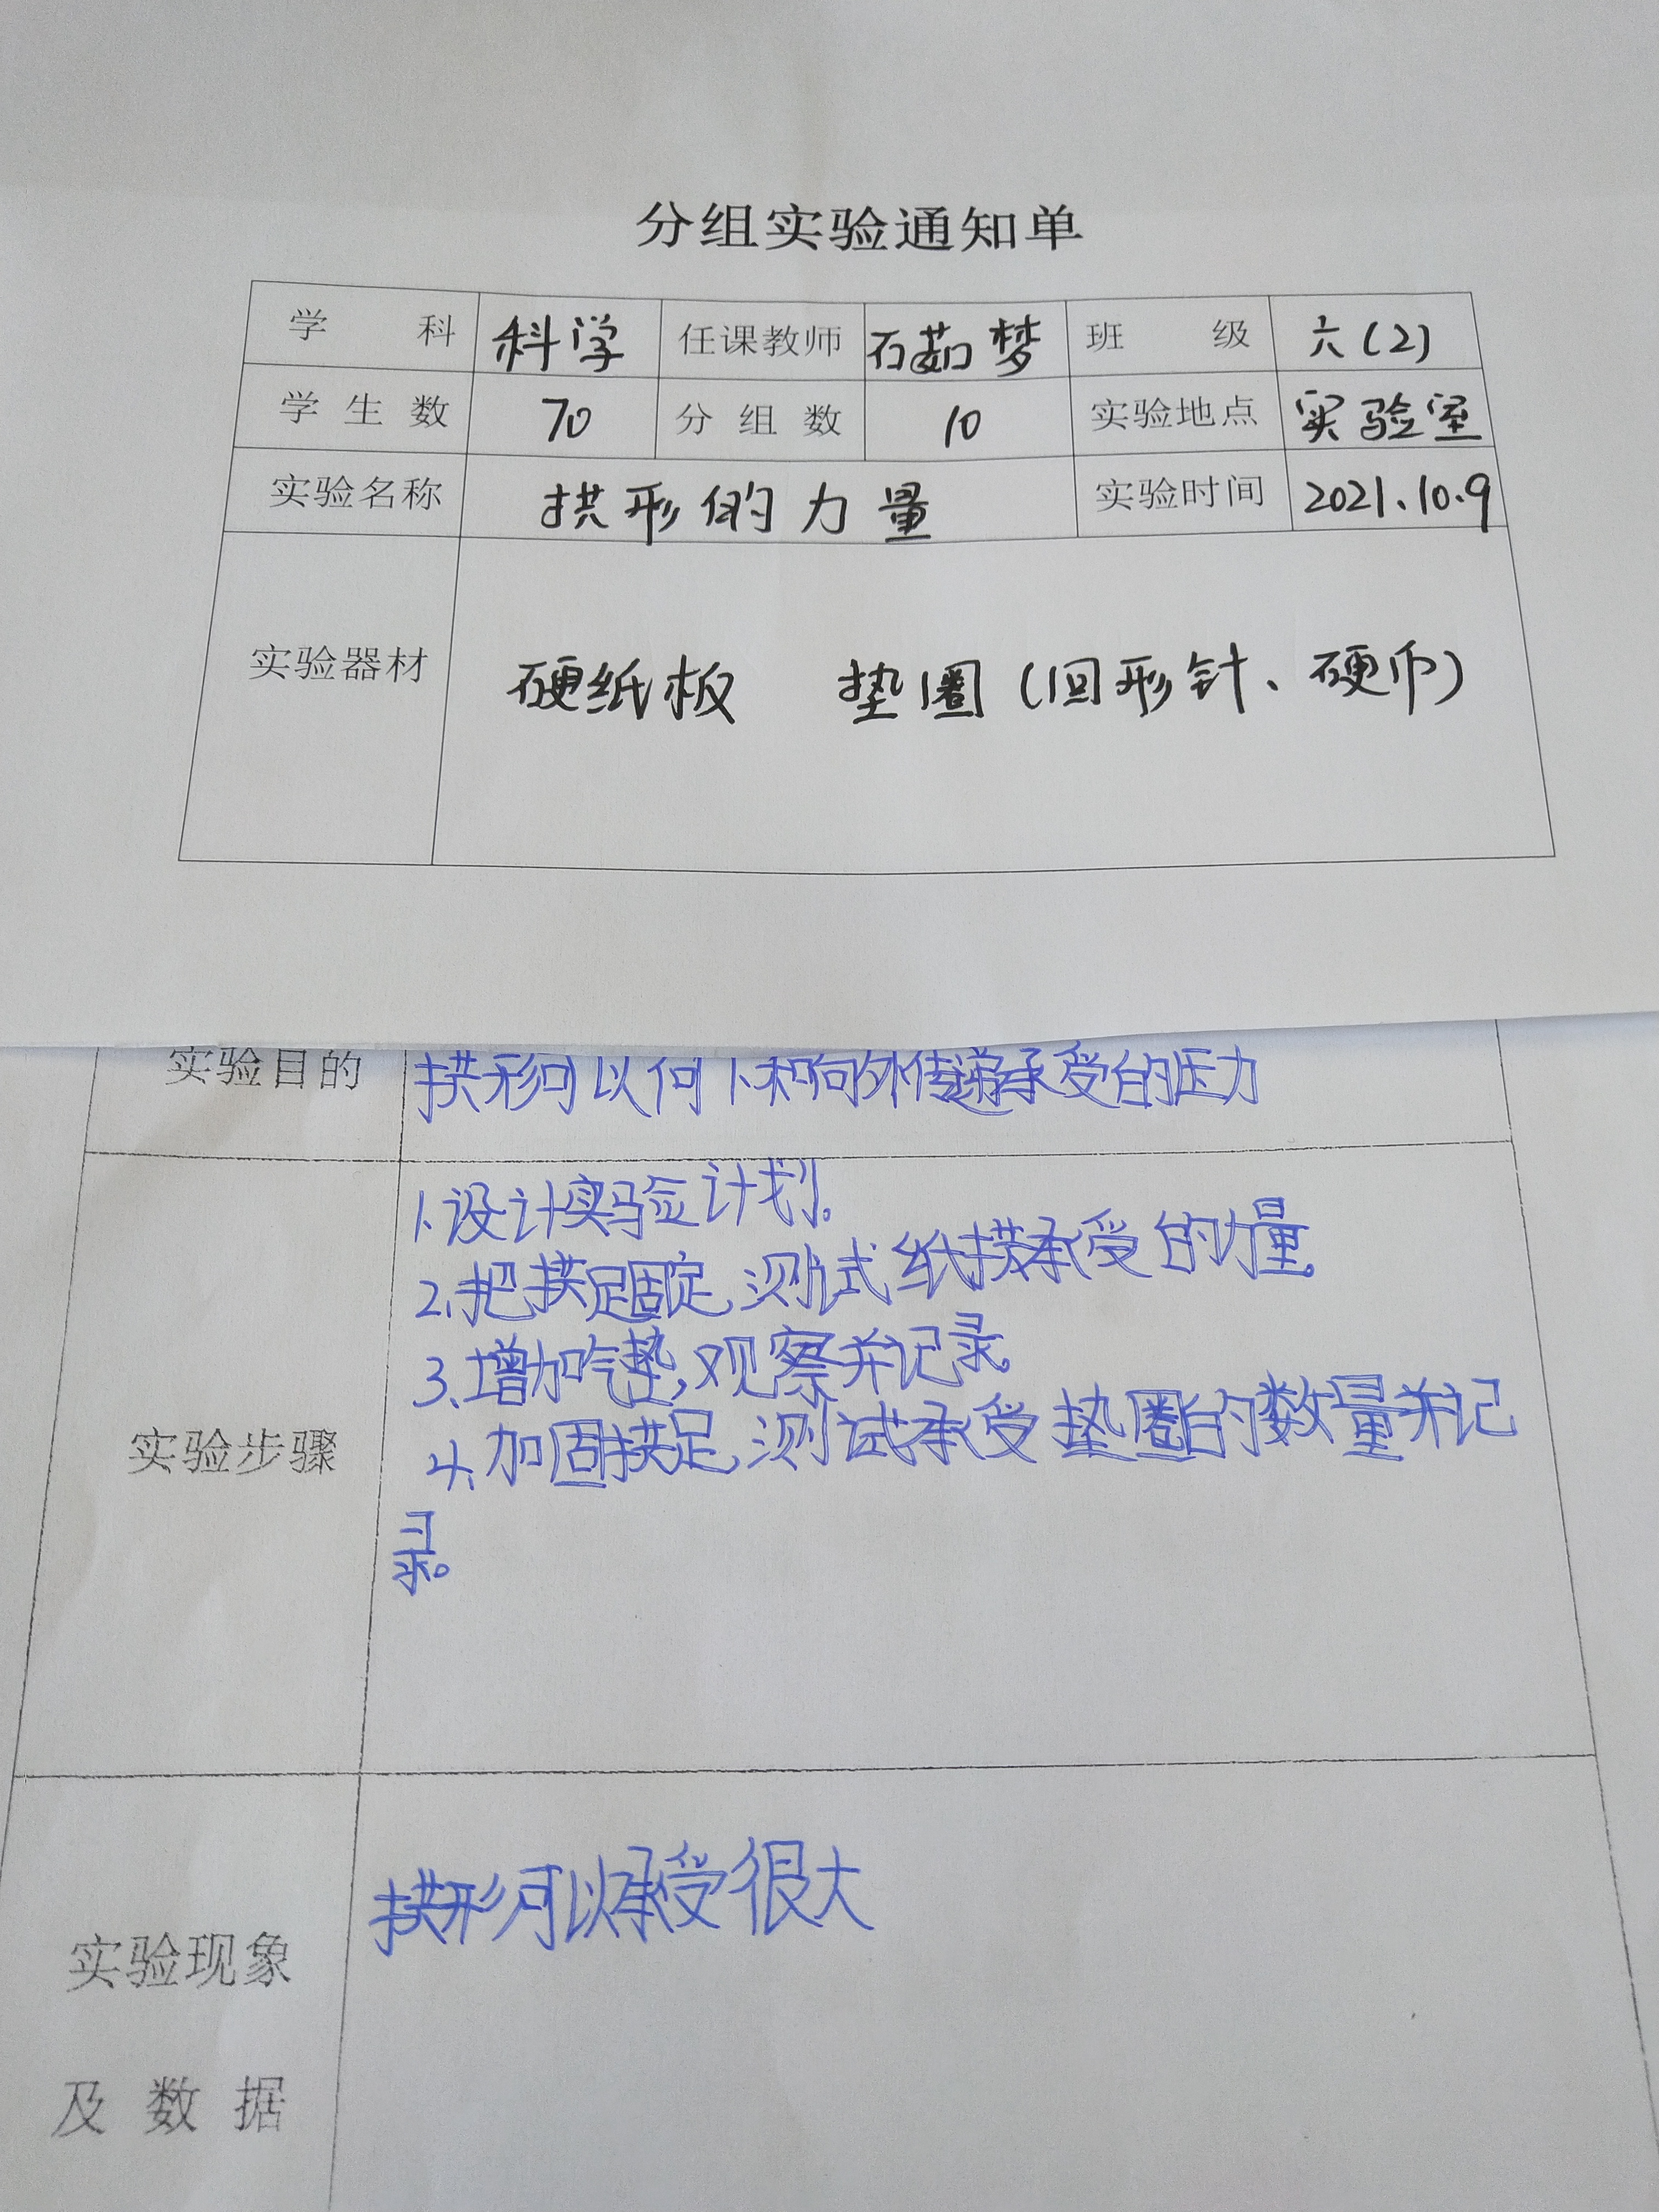 分组实验通知单
学 科 科学 任课教师 石茹梦 班 级 六(2)
学生数 70 分组数 10 实验地点 实验室
实验名称 拱形的力量 实验时间 2021.10.9
实验器材 硬纸板 垫圈(回形针、硬币)
实验目的 拱形可以向下和向外传递承受的压力
1.设计实验计划。
2.把拱足固定,测试纸拱承受的力量。
3.增加垫,观察并记录。
实验步骤 4.加固拱足,测试承受垫圈的数量并记
录。
拱形可以承受很大
实验现象
及数据